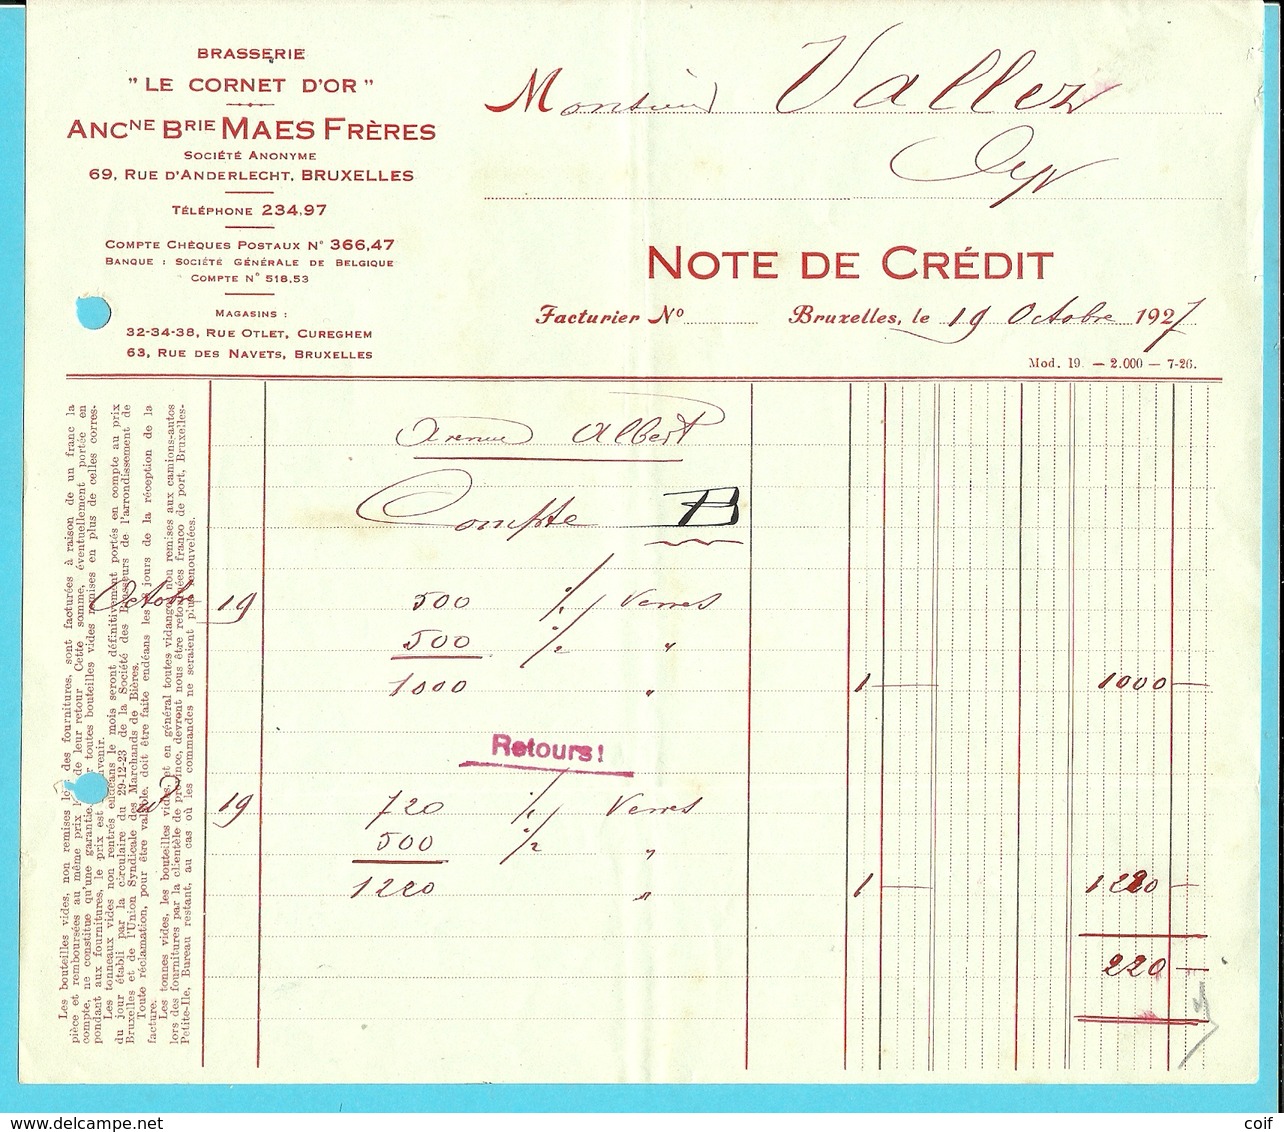 BRASSERIE
" LE CORNET D'OR "
ANCNE BRIE MAES FRÈRES
SOCIÉTÉ ANONYME
69, RUE D'ANDERLECHT, BRUXELLES
TÉLÉPHONE 234,97
COMPTE CHÈQUES POSTAUX N° 366,47
BANQUE : SOCIÉTÉ GÉNÉRALE DE BELGIQUE
COMPTE N° 518,53
MAGASINS :
32-34-38, RUE OTLET, CUREGHEM
63, RUE DES NAVETS, BRUXELLES
Monsieur Vallez
NOTE DE CRÉDIT
Facturier No Bruxelles, le 19 Octobre 1927
Mod. 19. — 2.000 — 7-26.
Avenue Albert
Compte B
Octobre 19 500 1/1 Verres
500 1/2 "
1000 " 1 — 1000 —
Retours!
19 720 1/1 Verres
500 1/2 "
1220 " 1 — 1220 —
220 —
Les bouteilles vides, non remises lors des fournitures, sont facturées à raison de un franc la
pièce et remboursées au même prix de leur retour Cette somme, éventuellement portée en
compte, ne constitue qu'une garantie toutes bouteilles vides remises en plus de celles corres-
pondant aux fournitures, le prix est venir.
Les tonneaux vides non rentrés endéans le mois seront définitivement portés en compte au prix
du jour établi par la circulaire du 29-12-23 de la Société des Brasseurs de l'arrondissement de
Bruxelles et de l'Union Syndicale des Marchands de Bières.
Toute réclamation, pour être valable, doit être faite endéans les jours de la réception de la
facture.
Les tonnes vides, les bouteilles vides et en général toutes vidanges non remises aux camions-autos
lors des fournitures par la clientèle de province, devront nous être retournées franco de port, Bruxelles-
Petite-Ile, Bureau restant, au cas où les commandes ne seraient plus renouvelées.
delcampe.net
coif